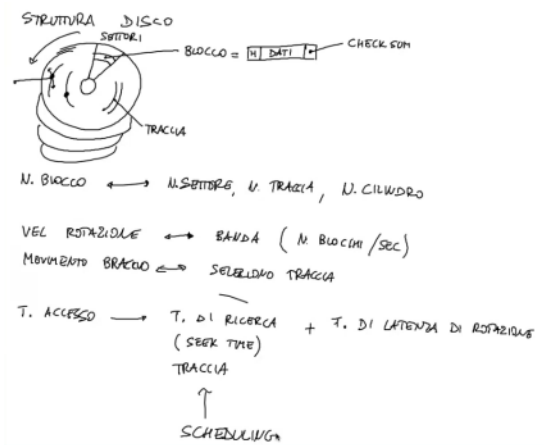 STRUTTURA DISCO
SETTORI
BLOCCO = H DATI
CHECKSUM
TRACCIA
N. BLOCCO ⟷ N. SETTORE, N. TRACCIA, N. CILINDRO
VEL ROTAZIONE ⟷ BANDA (N. BLOCCHI/SEC)
MOVIMENTO BRACCIO ⟷ SELEZIONO TRACCIA
T. ACCESSO ⟶ T. DI RICERCA + T. DI LATENZA DI ROTAZIONE
(SEEK TIME)
TRACCIA
SCHEDULING